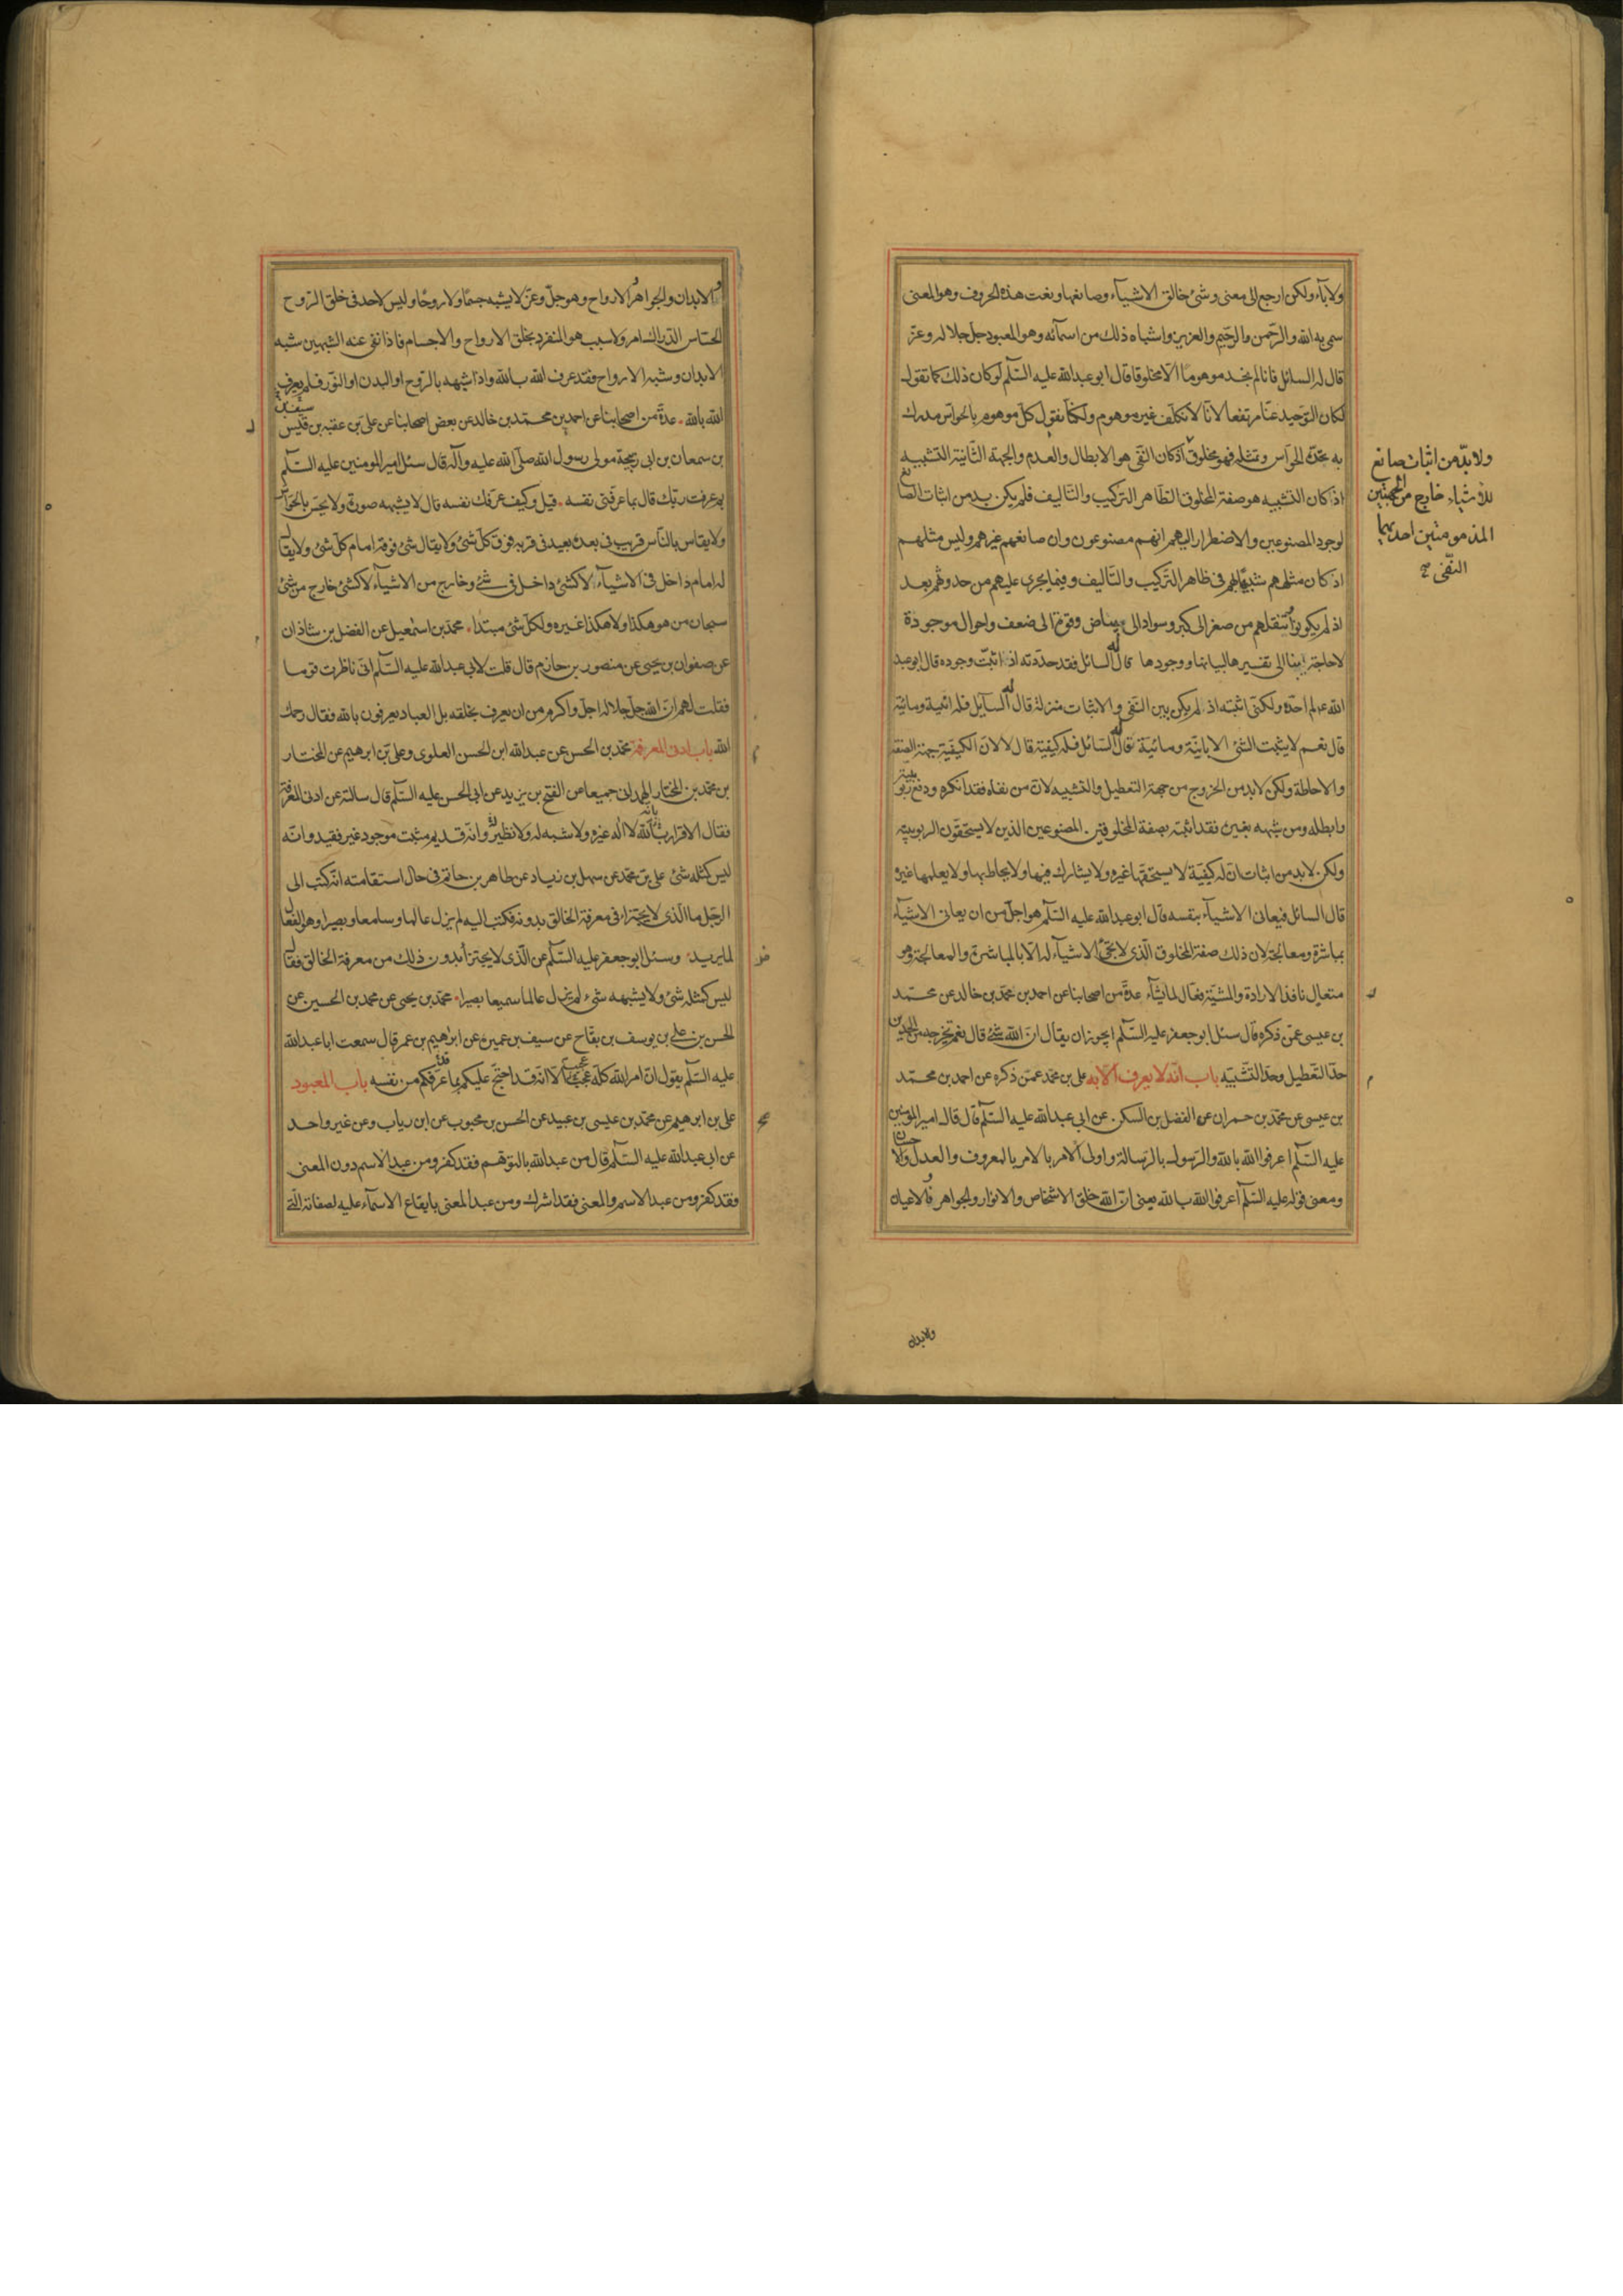 ولا باء ولكن ارجع الى معنى وشئ خالق الاشياء وصانعها ونعت هذه الحروف وهو المعنى
سمى به الله والرحمن والرحيم والعزيز واشباه ذلك من اسمائه وهو المعبود جل جلاله وعز
قال له السائل فانا لم نجد موهوما الا مخلوقا قال ابو عبدالله عليه السلم لو كان ذلك كما تقول
لكان التوحيد عنا مرتفعا لانا لا نكلف غير موهوم ولكنا نقول كل موهوم بالحواس مدرك
به تحده الحواس وتمثله فهو مخلوق اذ كان النفى هو الابطال والعدم والجهة الثانية التشبيه
اذ كان التشبيه هو صفة المخلوق الظاهر التركيب والتاليف فلم يكن بد من اثبات الصانع
لوجود المصنوعين والاضطرار اليهم انهم مصنوعون وان صانعهم غيرهم وليس مثلهم
اذ كان مثلهم شبيها بهم فى ظاهر التركيب والتاليف وفيما يجرى عليهم من حدوثهم بعد
اذ لم يكونوا وتنقلهم من صغر الى كبر وسواد الى بياض وقوة الى ضعف واحوال موجودة
لا حاجة بنا الى تفسيرها لبيانها ووجودها قال له السائل فقد حددته اذ اثبت وجوده قال ابو عبد
الله ع لم احده ولكنى اثبته اذ لم يكن بين النفى والاثبات منزلة قال له السايل فله انية ومائية
قال نعم لا يثبت الشئ الا بانية ومائية قال له السائل فله كيفية قال لا لان الكيفية جهة الصفة
والاحاطة ولكن لا بد من الخروج من جهة التعطيل والتشبيه لان من نفاه فقد انكره ودفع ربوبيته
وابطله ومن شبهه بغيره فقد اثبته بصفة المخلوقين المصنوعين الذين لا يستحقون الربوبية
ولكن لا بد من اثبات ان له كيفية لا يستحقها غيره ولا يشارك فيها ولا يحاط بها ولا يعلمها غيره
قال السائل فيعانى الاشياء بنفسه قال ابو عبدالله عليه السلم هو اجل من ان يعانى الاشياء
بمباشرة ومعالجة لان ذلك صفة المخلوق الذى لا تجئ الاشياء له الا بالمباشرة والمعالجة وهو
متعال نافذ الارادة والمشية فعال لما يشاء عدة من اصحابنا عن احمد بن محمد بن خالد عن محمد
بن عيسى عمن ذكره قال سئل ابو جعفر عليه السلم ايجوز ان يقال ان الله شئ قال نعم تخرجه من الحدين
حد التعطيل وحد التشبيه باب انه لا يعرف الا به على بن محمد عمن ذكره عن احمد بن محمد
بن عيسى عن محمد بن حمران عن الفضل بن السكن عن ابى عبدالله عليه السلم قال قال امير المومنين
عليه السلم اعرفوا الله بالله والرسول بالرسالة واولى الامر بالامر بالمعروف والعدل والاحسان
ومعنى قوله عليه السلم اعرفوا الله بالله يعنى ان الله خلق الاشخاص والانوار والجواهر والاعيان
ولا بد من اثبات صانع
للأشياء خارج من الجهتين
المذمومتين احديهما
النفى
والابدان
والابدان والجواهر الارواح وهو جل وعز لا يشبه جسما ولا روحا وليس لاحد فى خلق الروح
الحساس الدراك امر ولا سبب هو المتفرد بخلق الارواح والاجسام فاذا نفى عنه الشبهين شبه
الابدان وشبه الارواح فقد عرف الله بالله واذا شبهه بالروح او البدن او النور فلم يعرف
الله بالله عدة من اصحابنا عن احمد بن محمد بن خالد عن بعض اصحابنا عن على بن عقبه بن قيس
بن سمعان بن ابى ربيحة مولى رسول الله صلى الله عليه وآله قال سئل امير المومنين عليه السلم
بم عرفت ربك قال بما عرفنى نفسه قيل وكيف عرفك نفسه قال لا يشبهه صورة ولا يحس بالحواس
ولا يقاس بالناس قريب فى بعده بعيد فى قربه فوق كل شئ ولا يقال شئ فوقه امام كل شئ ولا يقال
له امام داخل فى الاشياء لا كشئ داخل فى شئ وخارج من الاشياء لا كشئ خارج من شئ
سبحان من هو هكذا ولا هكذا غيره ولكل شئ مبتدا محمد بن اسمعيل عن الفضل بن شاذان
عن صفوان بن يحيى عن منصور بن حازم قال قلت لابى عبدالله عليه السلم انى ناظرت قوما
فقلت لهم ان الله جل جلاله اجل واكرم من ان يعرف بخلقه بل العباد يعرفون بالله فقال رحمك
الله باب ادنى المعرفة محمد بن الحسن عن عبدالله ابن الحسن العلوى وعلى بن ابرهيم عن المختار
بن محمد بن المختار الهمدانى جميعا عن الفتح بن يزيد عن ابى الحسن عليه السلم قال سالته عن ادنى المعرفة
فقال الاقرار بانه لا اله غيره ولا شبه له ولا نظير وانه قديم مثبت موجود غير فقيد وانه
ليس كمثله شئ على بن محمد عن سهل بن زياد عن طاهر بن حاتم فى حال استقامته انه كتب الى
الرجل ما الذى لا يجتزا فى معرفة الخالق بدونه فكتب اليه لم يزل عالما وسامعا وبصيرا وهو الفعال
لما يريد وسئل ابو جعفر عليه السلم عن الذى لا يجتزأ بدون ذلك من معرفة الخالق فقال
ليس كمثله شئ ولا يشبهه شئ لم يزل عالما سميعا بصيرا محمد بن يحيى عن محمد بن الحسين عن
الحسن بن على بن يوسف بن بقاح عن سيف بن عميره عن ابرهيم بن عمر قال سمعت ابا عبدالله
عليه السلم يقول ان امر الله كله عجيب الا انه قد احتج عليكم بما عرفكم من نفسه باب المعبود
على بن ابرهيم عن محمد بن عيسى بن عبيد عن الحسن بن محبوب عن ابن رياب وعن غير واحد
عن ابى عبدالله عليه السلم قال من عبد الله بالتوهم فقد كفر ومن عبد الاسم دون المعنى
فقد كفر ومن عبد الاسم والمعنى فقد اشرك ومن عبد المعنى بايقاع الاسماء عليه لصفاته التى